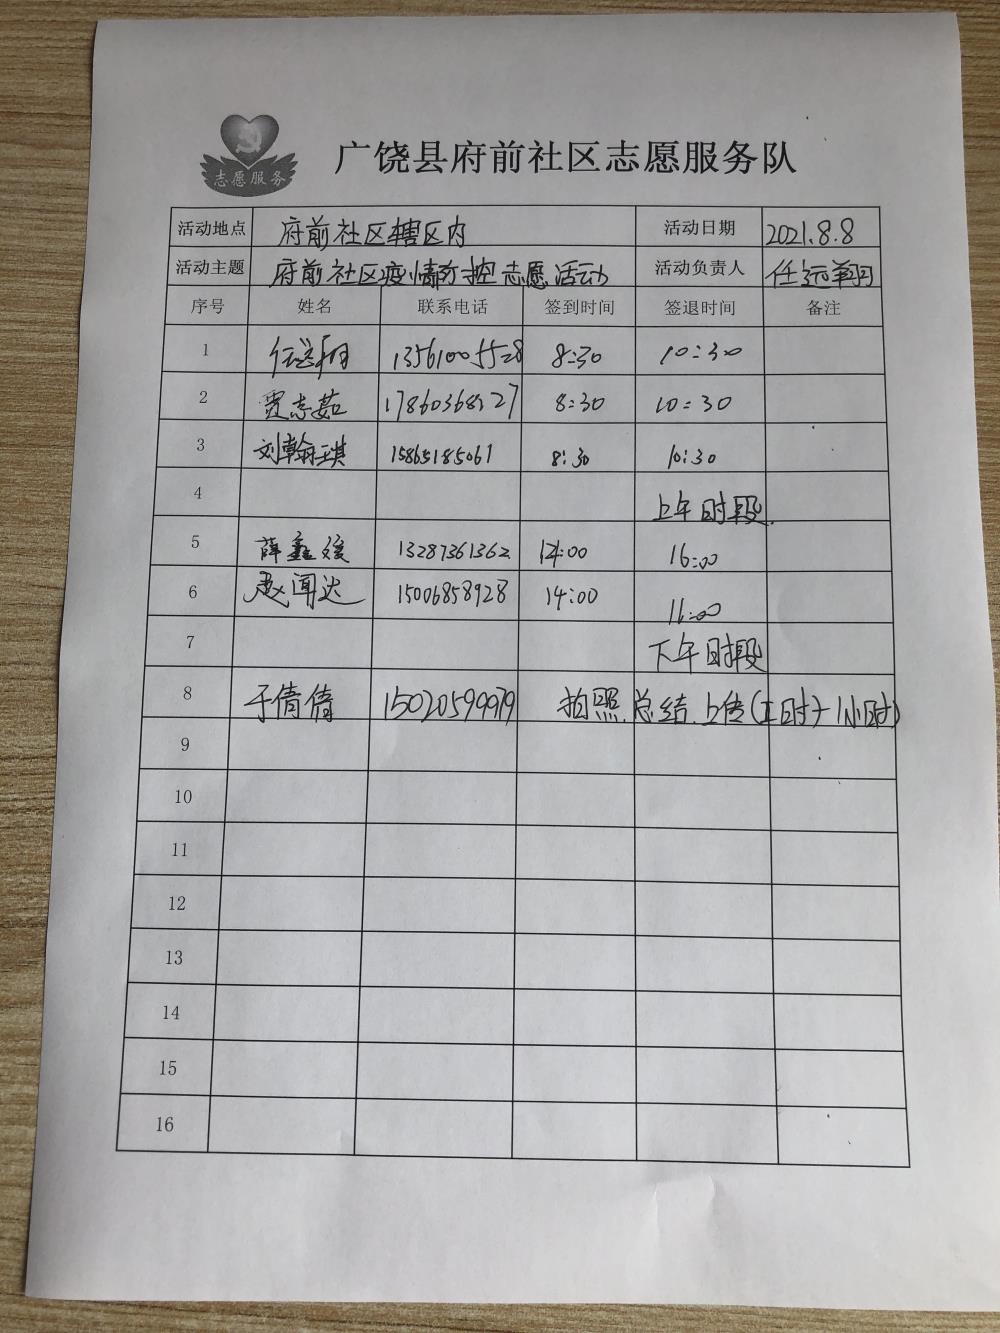 志愿服务
广饶县府前社区志愿服务队
活动地点 府前社区辖区内 活动日期 2021.8.8
活动主题 府前社区疫情防控志愿活动 活动负责人 任远翔
序号 姓名 联系电话 签到时间 签退时间 备注
1 任远翔 13561005528 8:30 10:30
2 贾志茹 8:30 10:30
3 刘翰琪 15865185061 8:30 10:30
4 上午时段
5 薛鑫媛 13287361362 14:00 16:00
6 赵闻达 15006858928 14:00 16:00
7 下午时段
8 于倩倩 15020599979 拍照.总结.上传(工时+1小时)
9
10
11
12
13
14
15
16